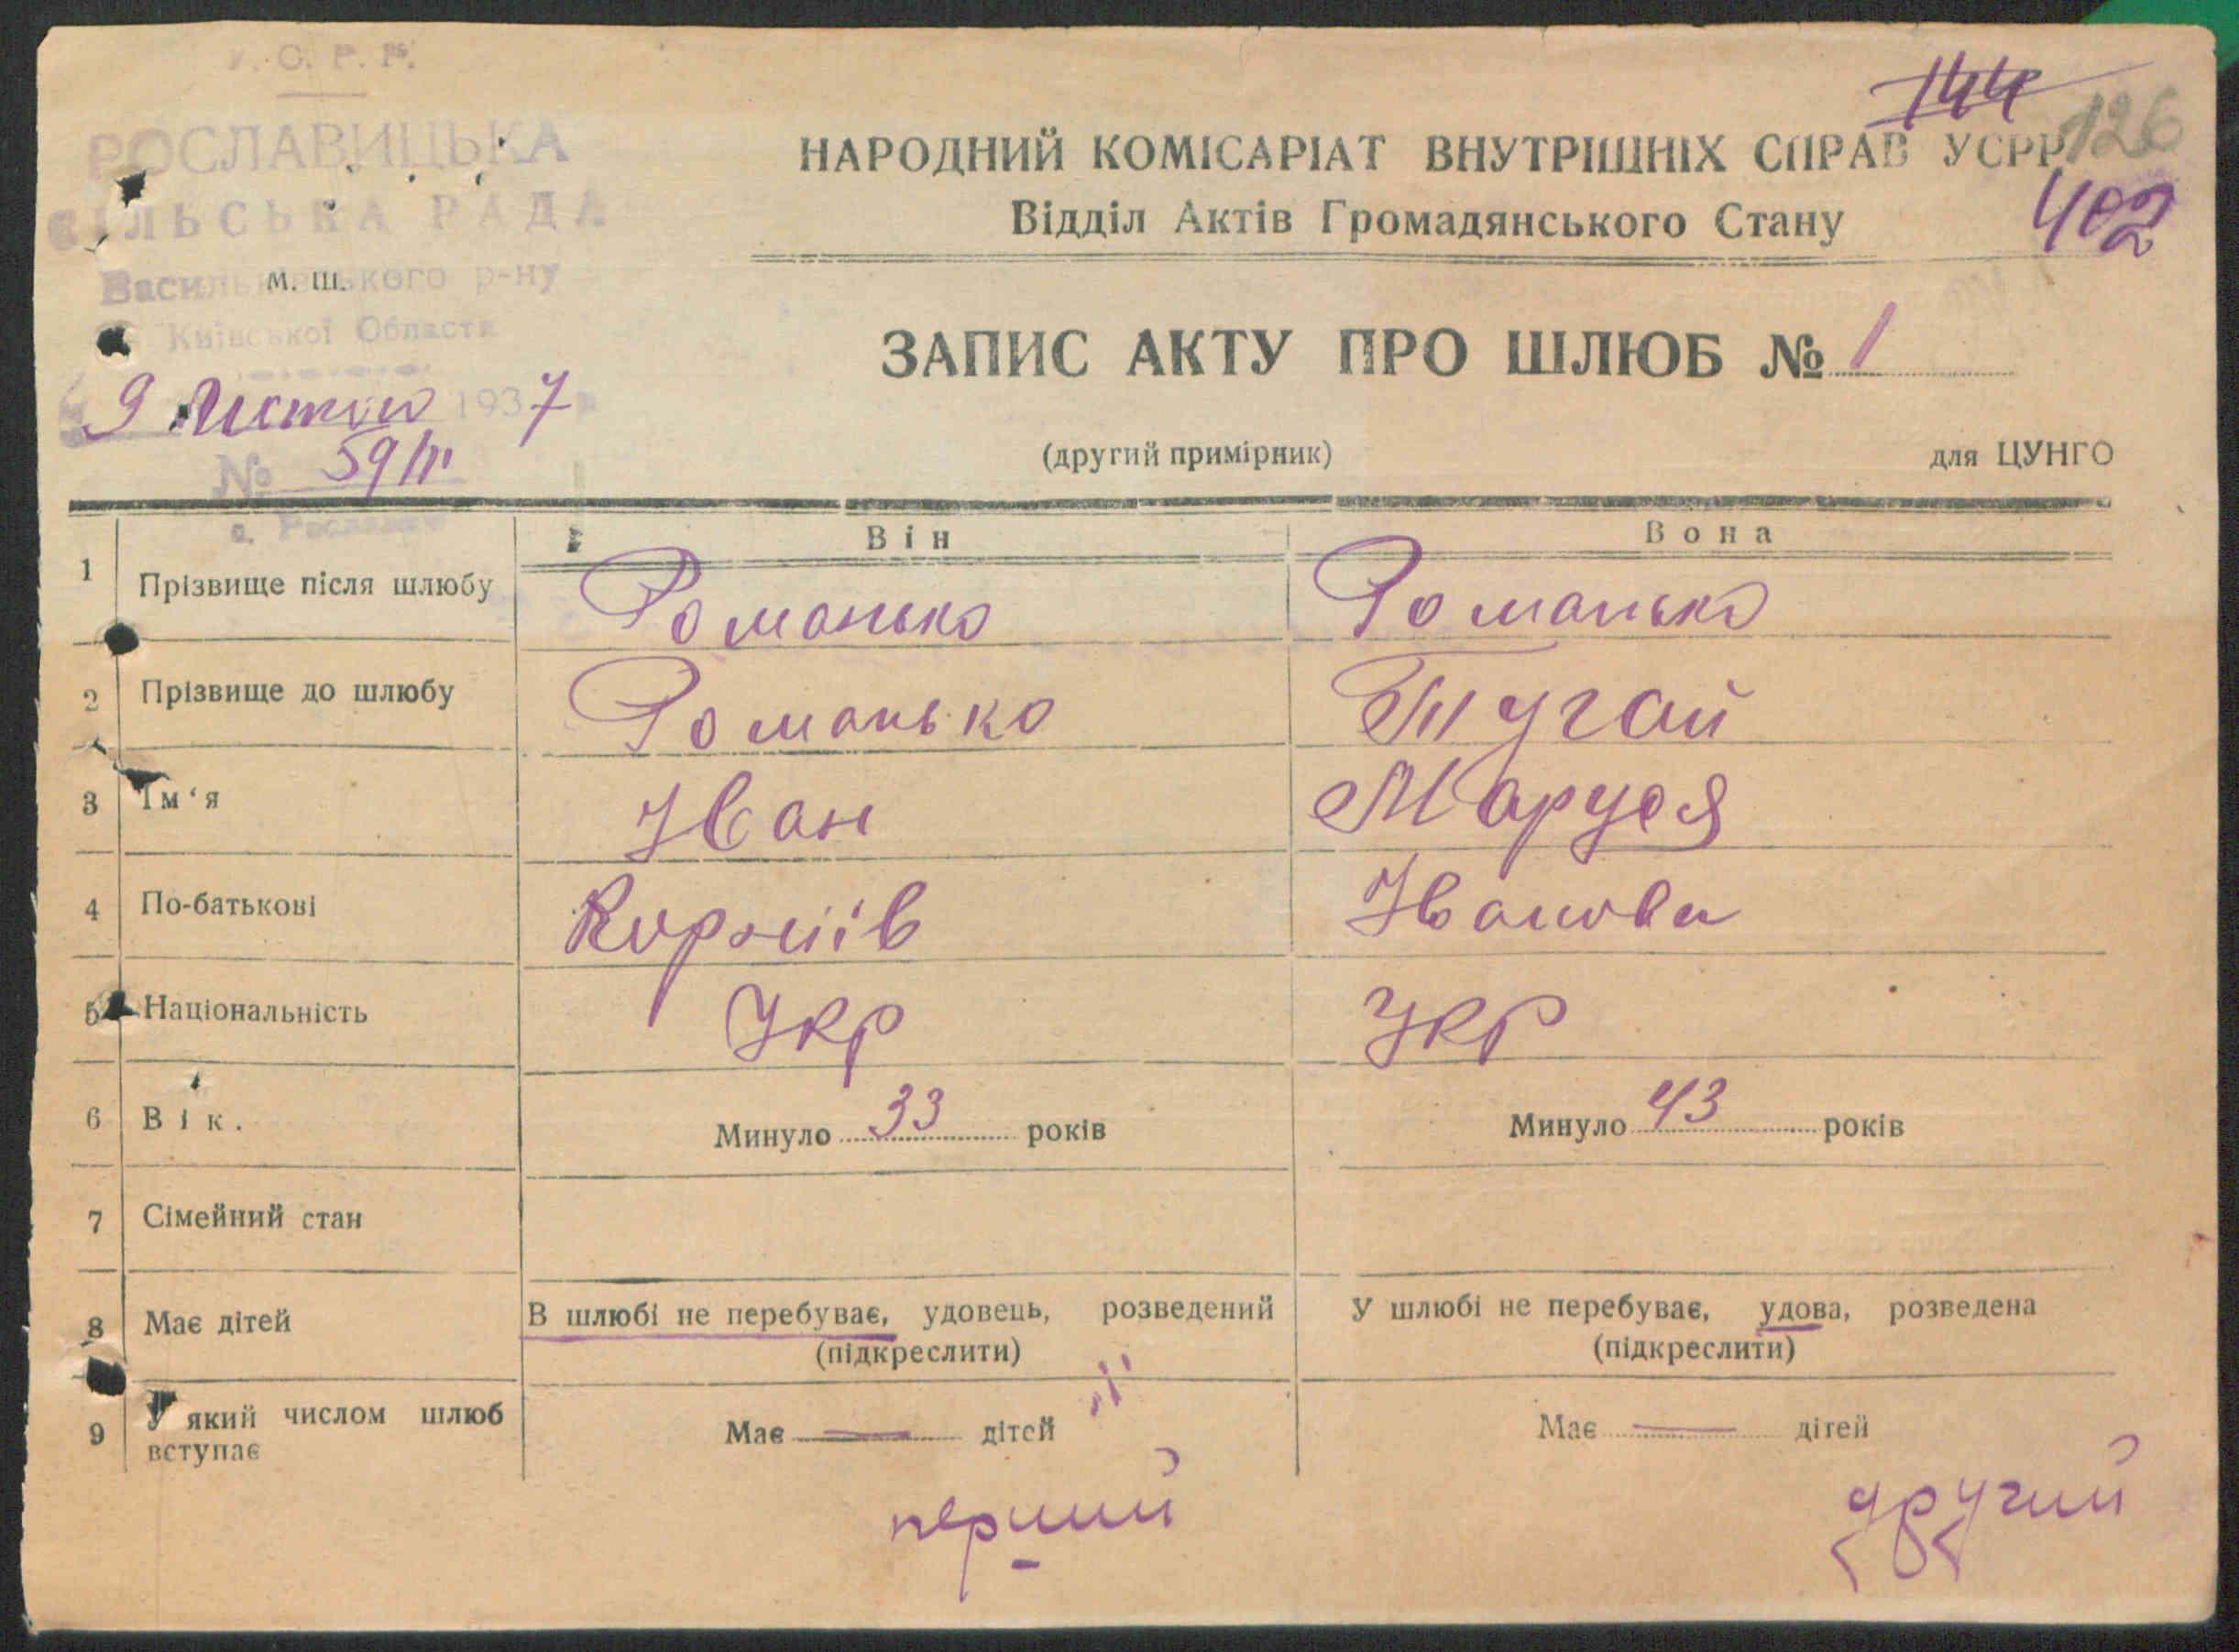 У. С. Р. Р.
РОСЛАВИЦЬКА
СІЛЬСЬКА РАДА
Васильківського р-ну
м. ш.
Київської Области
9 Лютого 1937
№ 59/II
с. Рославичі
144
126
402
НАРОДНИЙ КОМІСАРІАТ ВНУТРІШНІХ СПРАВ УСРР
Відділ Актів Громадянського Стану
ЗАПИС АКТУ ПРО ШЛЮБ № 1
(другий примірник) для ЦУНГО
Він Вона
1 Прізвище після шлюбу Романько Романько
2 Прізвище до шлюбу Романько Тугай
3 Ім‘я Іван Маруся
4 По-батькові Корніїв Іванова
5 Національність Укр Укр
6 Вік. Минуло 33 років Минуло 43 років
7 Сімейний стан
8 Має дітей В шлюбі не перебуває, удовець, розведений У шлюбі не перебуває, удова, розведена
(підкреслити) (підкреслити)
9 У який числом шлюб вступає Має — дітей Має — дітей
перший другий